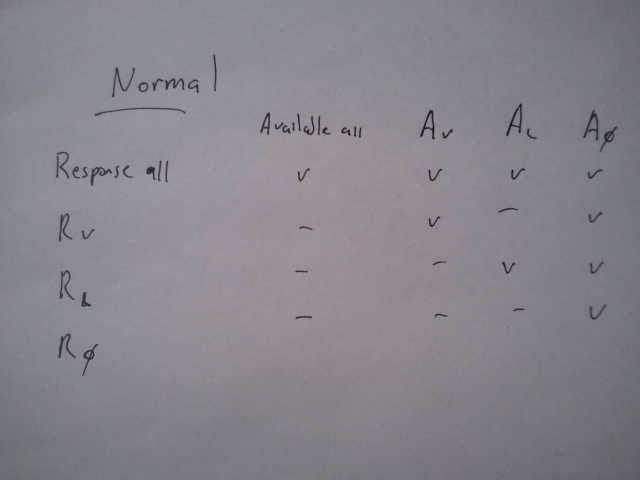 Normal
Available all Av AL Aø
Response all v v v v
Rv - v - v
RL - - v v
Rø - - - v